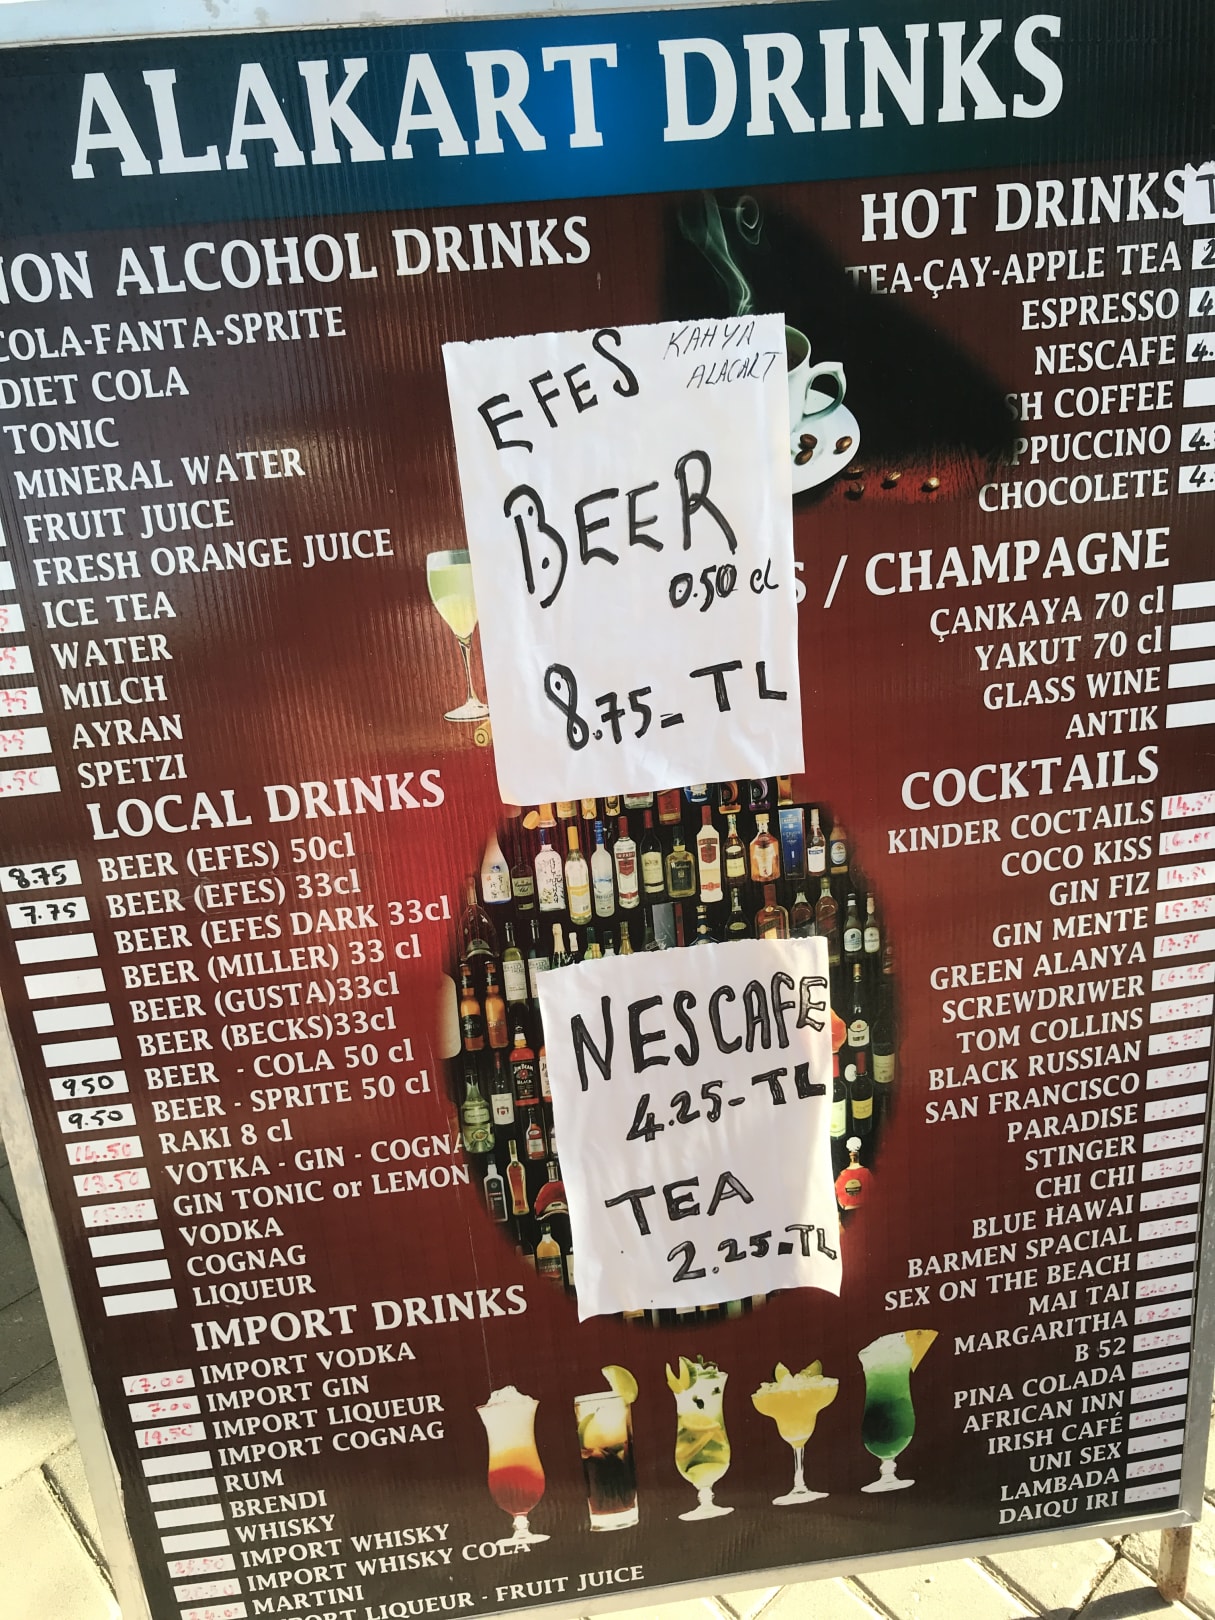 ALAKART DRINKS
NON ALCOHOL DRINKS
COLA-FANTA-SPRITE
DIET COLA
TONIC
MINERAL WATER
FRUIT JUICE
FRESH ORANGE JUICE
ICE TEA
WATER
MILCH
AYRAN
SPETZI
LOCAL DRINKS
8.75 BEER (EFES) 50cl
7.75 BEER (EFES) 33cl
BEER (EFES DARK 33cl
BEER (MILLER) 33 cl
BEER (GUSTA)33cl
BEER (BECKS)33cl
950 BEER - COLA 50 cl
9.50 BEER - SPRITE 50 cl
RAKI 8 cl
13.50 VOTKA - GIN - COGNA
GIN TONIC or LEMON
VODKA
COGNAG
LIQUEUR
IMPORT DRINKS
17.00 IMPORT VODKA
IMPORT GIN
19.50 IMPORT LIQUEUR
IMPORT COGNAG
RUM
BRENDI
WHISKY
IMPORT WHISKY
IMPORT WHISKY COLA
MARTINI
IMPORT LIQUEUR - FRUIT JUICE
EFES
KAHYA
ALACART
BEER
0.50 cl
8.75- TL
NESCAFE
4.25- TL
TEA
2.25.-TL
HOT DRINKS
TEA-ÇAY-APPLE TEA 2
ESPRESSO 4
NESCAFE 4.
SH COFFEE
PPUCCINO 4.
CHOCOLETE 4.
S / CHAMPAGNE
ÇANKAYA 70 cl
YAKUT 70 cl
GLASS WINE
ANTIK
COCKTAILS
KINDER COCTAILS
COCO KISS
GIN FIZ
GIN MENTE
GREEN ALANYA
SCREWDRIWER
TOM COLLINS
BLACK RUSSIAN
SAN FRANCISCO
PARADISE
STINGER
CHI CHI
BLUE HAWAI
BARMEN SPACIAL
SEX ON THE BEACH
MAI TAI
MARGARITHA
B 52
PINA COLADA
AFRICAN INN
IRISH CAFÉ
UNI SEX
LAMBADA
DAIQU IRI